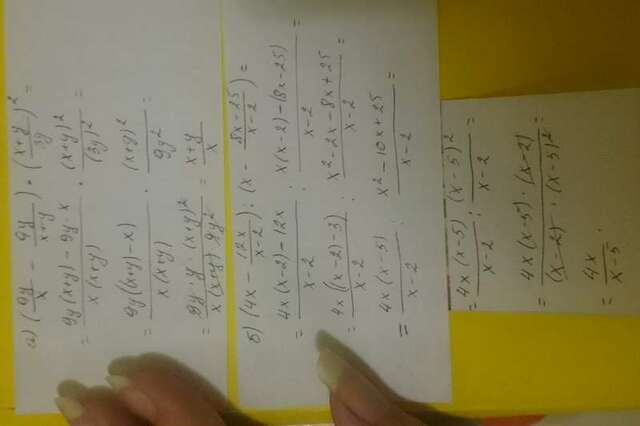 а) (9y/x - 9y/x+y) · (x+y/3y)² =
= 9y(x+y) - 9y·x / x(x+y) · (x+y)² / (3y)² =
= 9y((x+y)-x) / x(x+y) · (x+y)² / 9y² =
= 9y·y·(x+y)² / x(x+y)9y² = x+y / x
б) (4x - 12x/x-2) : (x - 8x-25/x-2) =
= 4x(x-2)-12x / x-2 : x(x-2)-(8x-25) / x-2 =
= 4x((x-2)-3) / x-2 : x²-2x-8x+25 / x-2 =
= 4x(x-5) / x-2 : x²-10x+25 / x-2 =
= 4x(x-5) / x-2 : (x-5)² / x-2 =
= 4x(x-5)·(x-2) / (x-2)·(x-5)² =
= 4x / x-5 .